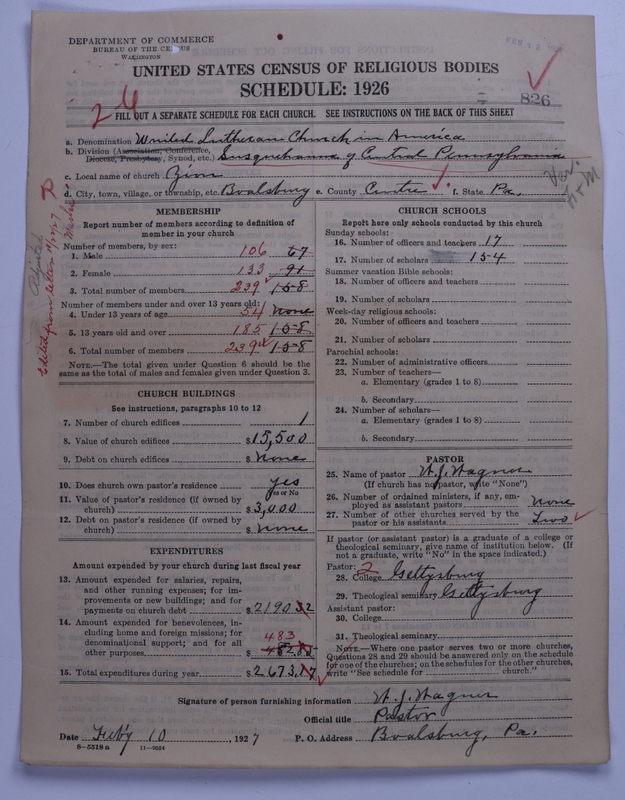 DEPARTMENT OF COMMERCE
BUREAU OF THE CENSUS
WASHINGTON
FEB 12
UNITED STATES CENSUS OF RELIGIOUS BODIES
SCHEDULE: 1926
826
FILL OUT A SEPARATE SCHEDULE FOR EACH CHURCH. SEE INSTRUCTIONS ON THE BACK OF THIS SHEET
a. Denomination United Lutheran Church in America
b. Division (Association, Conference,
Diocese, Presbytery, Synod, etc.) Susquehanna of Central Pennsylvania
c. Local name of church Zion
d. City, town, village, or township, etc. Boalsburg e. County Centre f. State Pa.
MEMBERSHIP
Report number of members according to definition of
member in your church
Number of members, by sex:
1. Male 106 67
2. Female 133 91
3. Total number of members 239 158
Number of members under and over 13 years old:
4. Under 13 years of age 54 None
5. 13 years old and over 185 158
6. Total number of members 239 158
NOTE.—The total given under Question 6 should be the
same as the total of males and females given under Question 3.
CHURCH BUILDINGS
See instructions, paragraphs 10 to 12
7. Number of church edifices 1
8. Value of church edifices $15,500
9. Debt on church edifices $ None
10. Does church own pastor's residence yes
Yes or No
11. Value of pastor's residence (if owned by
church) $3,000
12. Debt on pastor's residence (if owned by
church) $ None
EXPENDITURES
Amount expended by your church during last fiscal year
13. Amount expended for salaries, repairs,
and other running expenses; for im-
provements or new buildings; and for
payments on church debt $2190.32
14. Amount expended for benevolences, in-
cluding home and foreign missions; for
denominational support; and for all
483
other purposes $
15. Total expenditures during year $2,673.17
CHURCH SCHOOLS
Report here only schools conducted by this church
Sunday schools:
16. Number of officers and teachers 17
17. Number of scholars 154
Summer vacation Bible schools:
18. Number of officers and teachers
19. Number of scholars
Week-day religious schools:
20. Number of officers and teachers
21. Number of scholars
Parochial schools:
22. Number of administrative officers
23. Number of teachers—
a. Elementary (grades 1 to 8)
b. Secondary
24. Number of scholars—
a. Elementary (grades 1 to 8)
b. Secondary
PASTOR
25. Name of pastor W. J. Wagner
(If church has no pastor, write "None")
26. Number of ordained ministers, if any, em-
ployed as assistant pastors None
27. Number of other churches served by the
pastor or his assistants Two
If pastor (or assistant pastor) is a graduate of a college or
theological seminary, give name of institution below. (If
not a graduate, write "No" in the space indicated.)
Pastor: 2
28. College Gettysburg
29. Theological seminary Gettysburg
Assistant pastor:
30. College
31. Theological seminary
NOTE.—Where one pastor serves two or more churches,
Questions 28 and 29 should be answered only on the schedule
for one of the churches; on the schedules for the other churches,
write "See schedule for church."
Signature of person furnishing information W. J. Wagner
Official title Pastor
Date Feby 10, 1927 P. O. Address Boalsburg, Pa.
8-5518a 11-9024